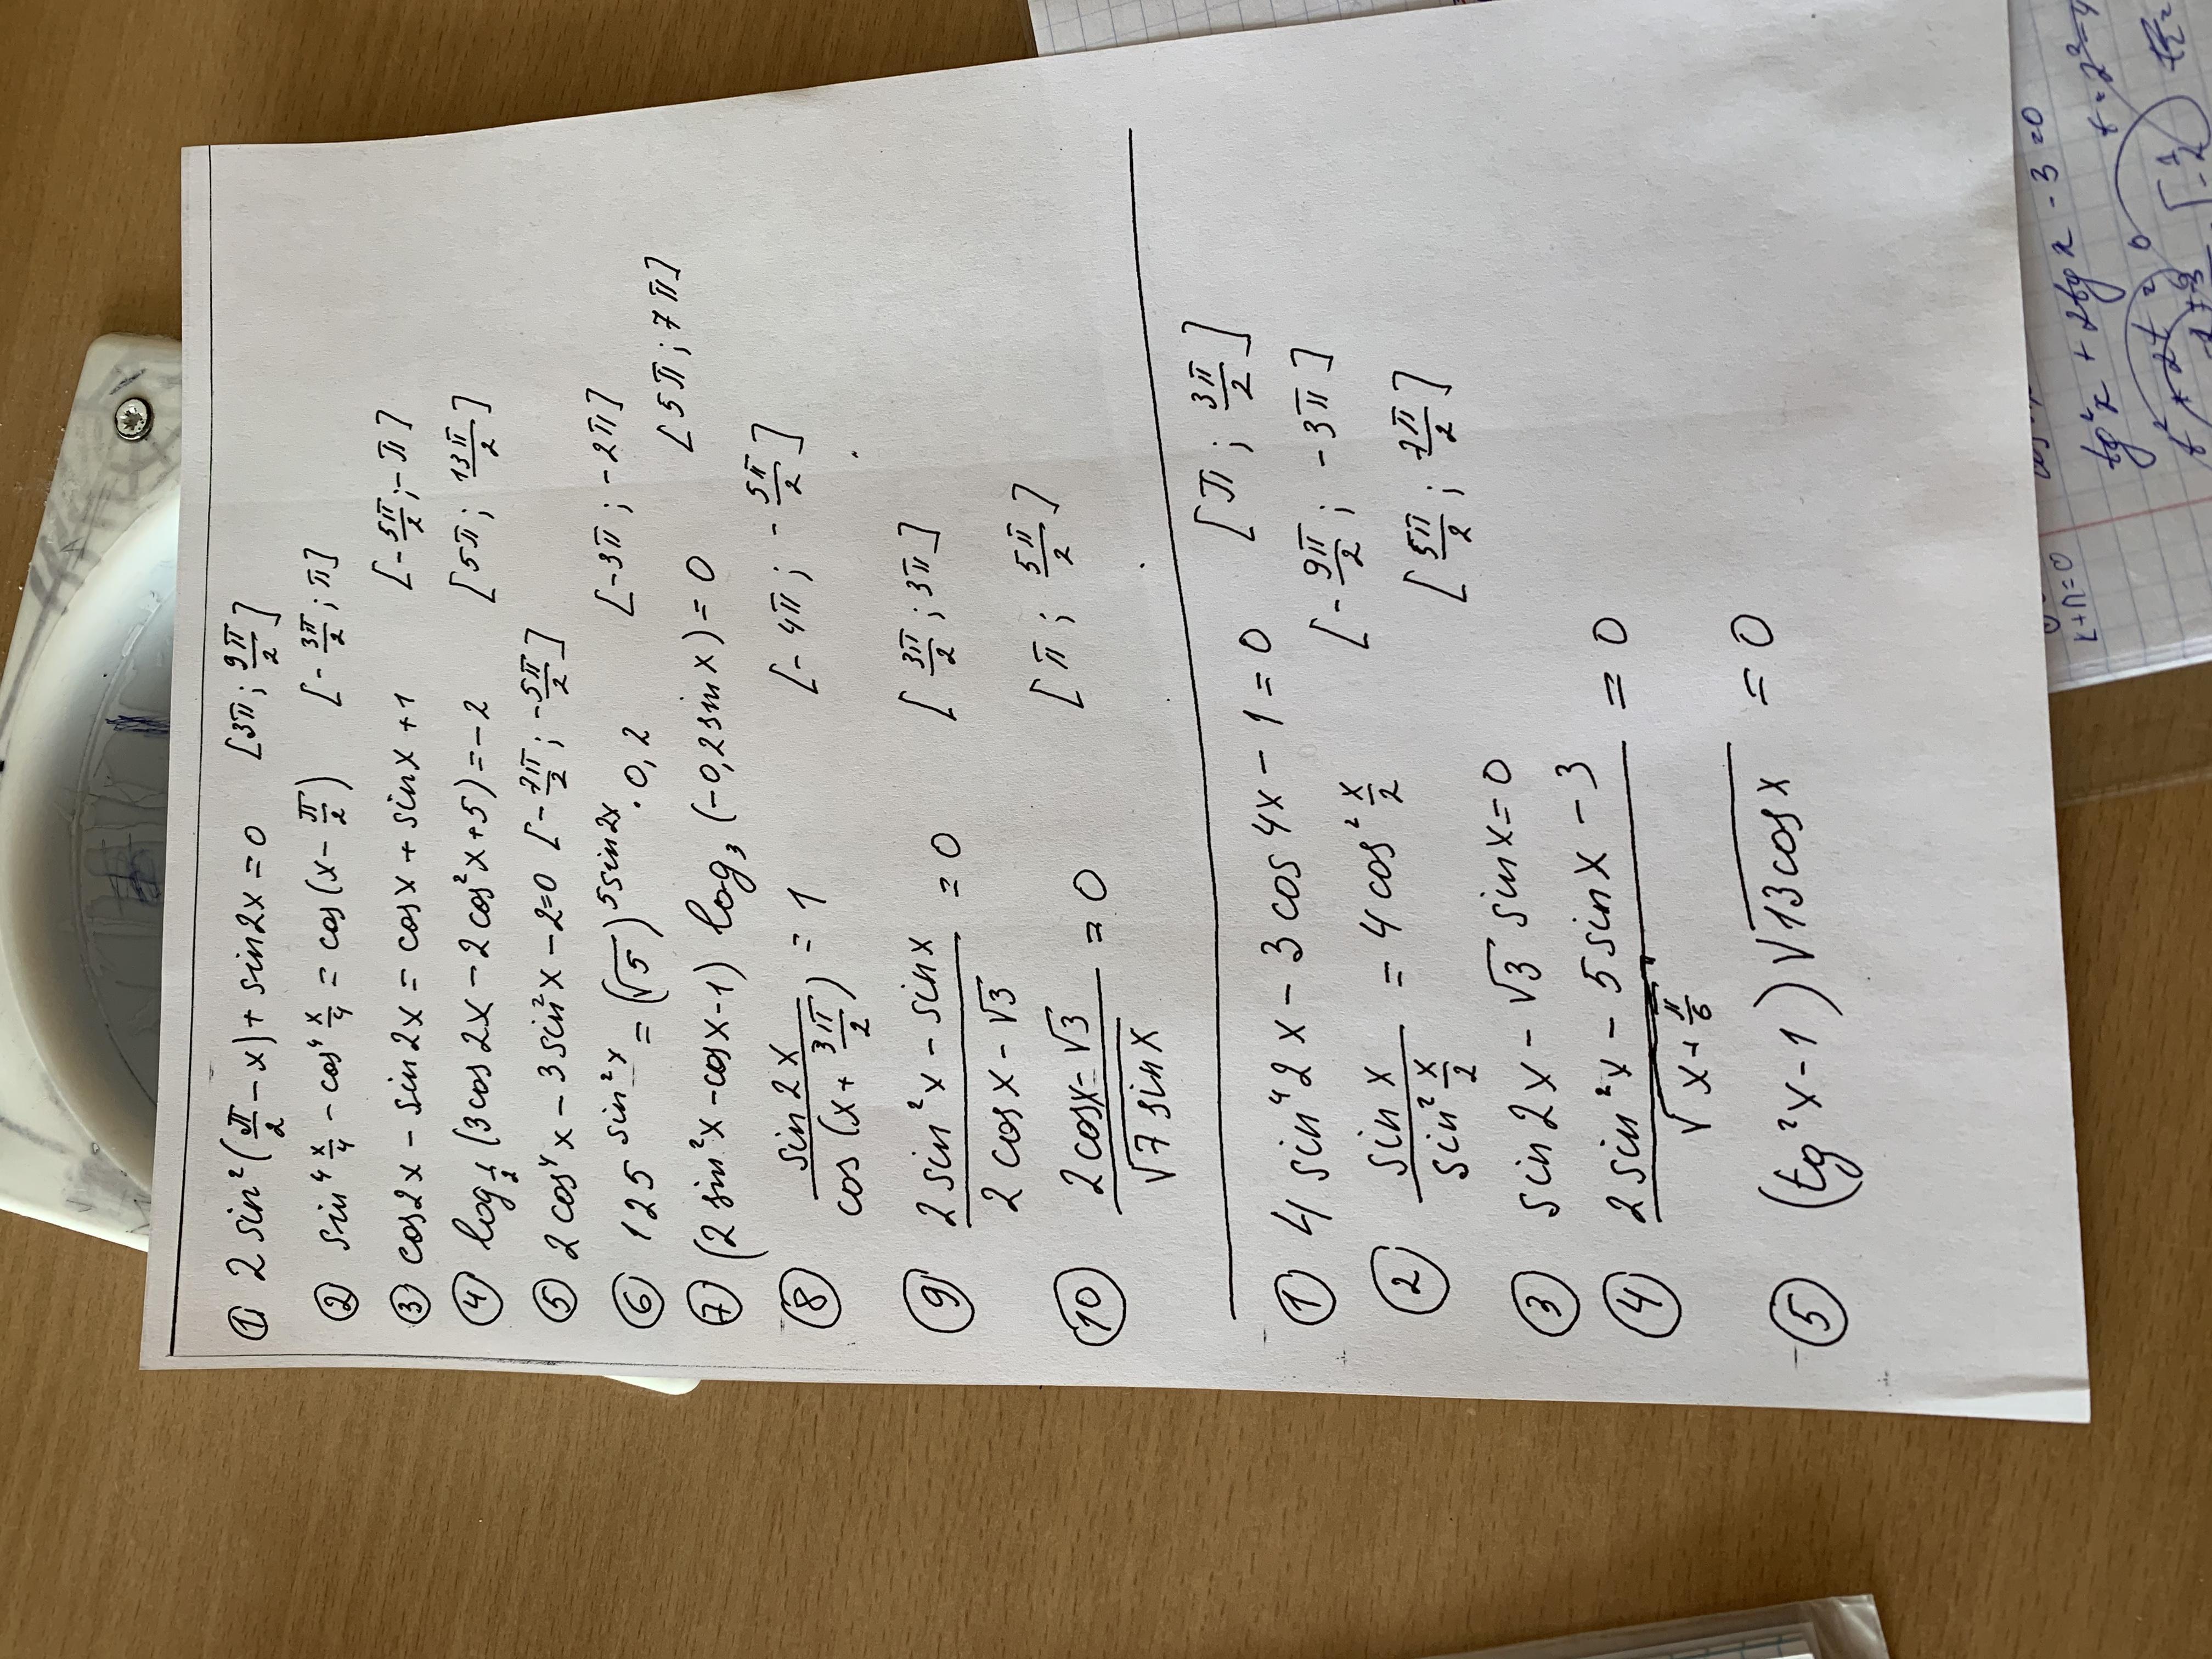 ① 2 sin² (π/2 - x) + sin 2x = 0 [3π; 9π/2]
② sin⁴ x/4 - cos⁴ x/4 = cos (x - π/2) [-3π/2; π]
③ cos 2x - sin 2x = cos x + sin x + 1 [-5π/2; -π]
④ log_{1/2} (3 cos 2x - 2 cos² x + 5) = -2 [5π; 13π/2]
⑤ 2 cos⁴ x - 3 sin² x - 2 = 0 [-7π/2; -5π/2]
⑥ 125^{sin² x} = (√5)^{5 sin 2x} · 0,2 [-3π; -2π]
⑦ (2 sin² x - cos x - 1) log₃ (-0,2 sin x) = 0 [5π; 7π]
⑧ sin 2x / cos (x + 3π/2) = 1 [-4π; -5π/2]
⑨ (2 sin² x - sin x) / (2 cos x - √3) = 0 [3π/2; 3π]
⑩ (2 cos x - √3) / √(7 sin x) = 0 [π; 5π/2]
① 4 sin⁴ 2x - 3 cos 4x - 1 = 0 [π; 3π/2]
② sin x / sin² x/2 = 4 cos² x/2 [-9π/2; -3π]
③ sin 2x - √3 sin x = 0 [5π/2; 7π/2]
④ (2 sin² x - 5 sin x - 3) / √(x + π/6) = 0
⑤ (tg² x - 1) √(13 cos x) = 0
tg² x + 2tg x - 3 = 0